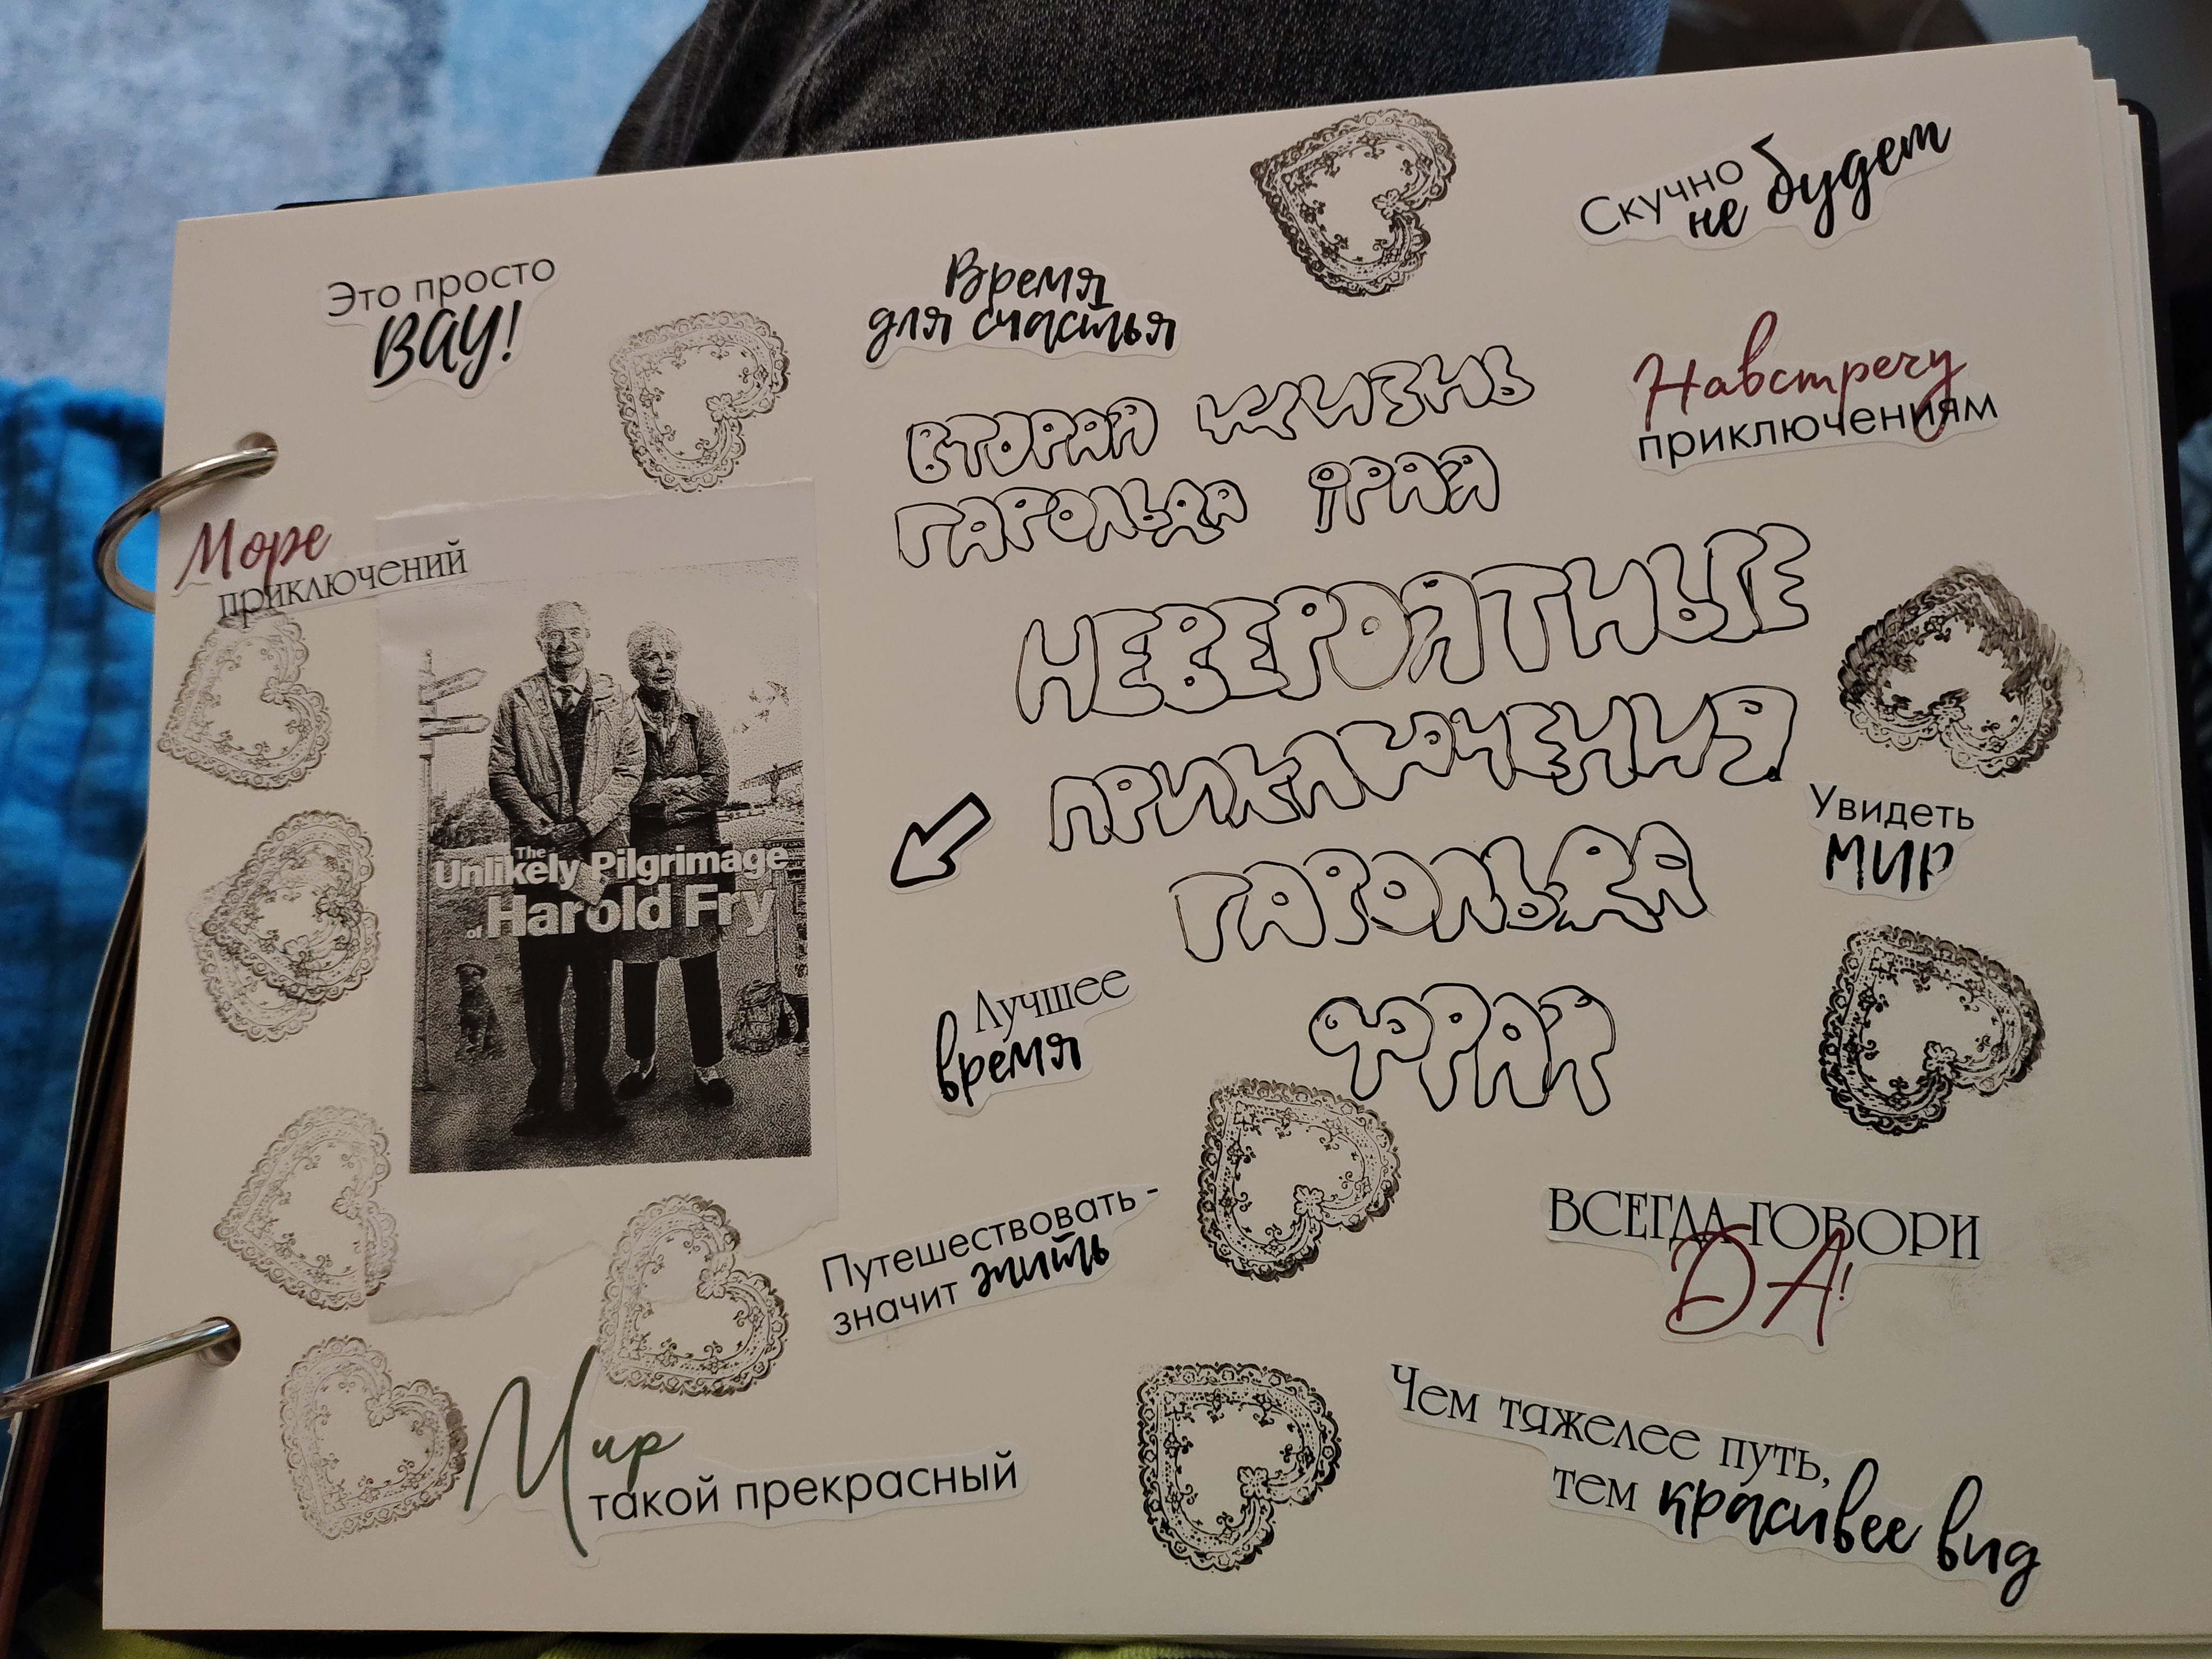 Это просто
ВАУ!
Время
для счастья
Скучно
не будет
Навстречу
приключениям
ВТОРАЯ ЖИЗНЬ
ГАРОЛЬДА ФРАЯ
НЕВЕРОЯТНЫЕ
ПРИКЛЮЧЕНИЯ
ГАРОЛЬДА
ФРАЯ
Море
приключений
The
Unlikely Pilgrimage
of Harold Fry
Увидеть
МИР
Лучшее
время
Путешествовать -
значит жить
ВСЕГДА ГОВОРИ
ДА!
Мир
такой прекрасный
Чем тяжелее путь,
тем красивее вид